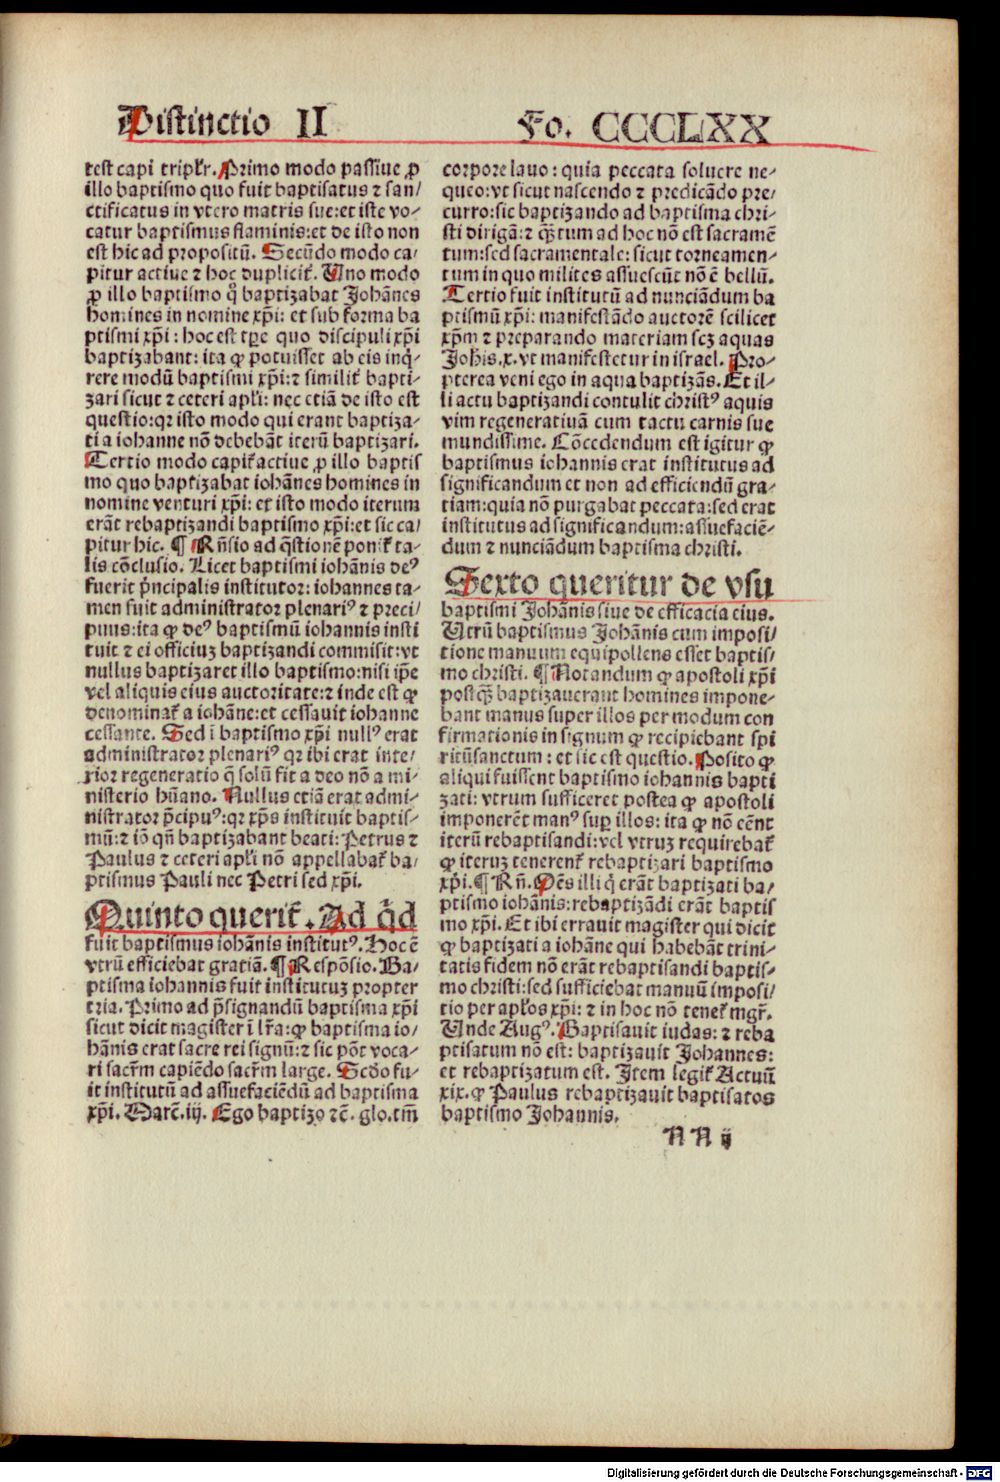 Distinctio II
Fo. CCCCLXX
test capi tripłr. Primo modo passiue ꝓ
illo baptismo quo fuit baptisatus ⁊ san/
ctificatus in vtero matris sue: et iste vo-
catur baptismus flaminis: et de isto non
est hic ad propositū. Secūdo modo ca/
pitur actiue ⁊ hoc duplicit̄. Uno modo
ꝓ illo baptismo qͦ baptizabat Johānes
homines in nomine xp̄i: et sub forma ba
ptismi xp̄i: hoc est tꝑe quo discipuli xp̄i
baptizabant: ita ꝙ potuisset ab eis inq̇/
rere modū baptismi xp̄i: ⁊ similit̄ bapti-
zari sicut ⁊ ceteri apłi: nec etiā de isto est
questio: qꝛ isto modo qui erant baptiza-
ti a iohanne nō debebāt iterū baptizari.
Tertio modo capit̄ actiue ꝓ illo baptis
mo quo baptizabat iohānes homines in
nomine venturi xp̄i: et isto modo iterum
erāt rebaptizandi baptismo xp̄i: et sic ca/
pitur hic. ¶ Rn̄sio ad q̄stionē ponit̄ ta-
lis cōclusio. Licet baptismi iohānis deꝰ
fuerit p̄ncipalis institutor: iohannes ta-
men fuit administrator plenariꝰ ⁊ preci/
puus: ita ꝙ deꝰ baptismū iohannis insti
tuit ⁊ ei officiuꝫ baptizandi commisit: vt
nullus baptizaret illo baptismo: nisi ip̄e
vel aliquis eius auctoritate: ⁊ inde est ꝙ
denominat̄ a iohāne: et cessauit iohanne
cessante. Sed ī baptismo xp̄i nullꝰ erat
administrator plenariꝰ qꝛ ibi erat inte/
rior regeneratio q̄ solū fit a deo nō a mi-
nisterio hūano. Nullus etiā erat admi-
nistrator p̄cipuꝰ: qꝛ xp̄s instituit baptis-
mū: ⁊ iō qn̄ baptizabant beati: Petrus ⁊
Paulus ⁊ ceteri apłi nō appellabat̄ ba/
ptismus Pauli nec Petri sed xp̄i.
Quinto querit̄. Ad q̇d
fuit baptismus iohānis institutꝰ. Hoc ē
vtrū efficiebat gratiā. ¶ Respōsio. Ba/
ptisma iohannis fuit institutuꝫ propter
tria. Primo ad p̄signandū baptisma xp̄i
sicut dicit magister ī lr̄a: ꝙ baptisma io/
hānis erat sacre rei signū: ⁊ sic pōt voca-
ri sacr̄m capiēdo sacr̄m large. Scd̄o fu-
it institutū ad assuefaciēdū ad baptisma
xp̄i. Marc̄. iij. Ego baptizo ⁊c̄. glo. tm̄
corpore lauo: quia peccata soluere ne-
queo: vt sicut nascendo ⁊ predicādo pre/
curro: sic baptizando ad baptisma chri-
sti dirigā: ⁊ q̄ꝫtum ad hoc nō est sacramē
tum: sed sacramentale: sicut torneamen-
tum in quo milites assuescūt nō ē bellū.
Tertio fuit institutū ad nunciādum ba
ptismū xp̄i: manifestādo auctorē scilicet
xp̄m ⁊ preparando materiam scꝫ aquas
Joh̄is. x. vt manifestetur in israel. Pro/
pterea veni ego in aqua baptizās. Et il-
li actu baptizandi contulit christꝰ aquis
vim regeneratiuā cum tactu carnis sue
mundissime. Cōcedendum est igitur ꝙ
baptismus iohannis erat institutus ad
significandum et non ad efficiendū gra-
tiam: quia nō purgabat peccata: sed erat
institutus ad significandum: assuefaciē-
dum ⁊ nunciādum baptisma christi.
Sexto queritur de vsu
baptismi Johānis siue de efficacia eius.
Utrū baptismus Johānis cum imposi/
tione manuum equipollens esset baptis/
mo christi. ¶ Notandum ꝙ apostoli xp̄i
postq̄ꝫ baptizauerant homines impone-
bant manus super illos per modum con
firmationis in signum ꝙ recipiebant spi
ritūsanctum: et sic est questio. Posito ꝙ
aliqui fuissent baptismo iohannis bapti
zati: vtrum sufficeret postea ꝙ apostoli
imponerēt manꝰ suꝑ illos: ita ꝙ nō eēnt
iterū rebaptisandi: vel vtruꝫ requirebat̄
ꝙ iteruꝫ tenerent̄ rebaptizari baptismo
xp̄i. ¶ Rn̄. Oēs illi q̇ erāt baptizati ba/
ptismo iohānis: rebaptizādi erāt baptis
mo xp̄i. Et ibi errauit magister qui dicit
ꝙ baptizati a iohāne qui habebāt trini-
tatis fidem nō erāt rebaptisandi baptis-
mo christi: sed sufficiebat manuū imposi/
tio per apłos xp̄i: ⁊ in hoc nō tenet̄ mgr̄.
Unde Augꝰ. Baptisauit iudas: ⁊ reba
ptisatum nō est: baptizauit Johannes:
et rebaptizatum est. Item legit̄ Actuū
xix. ꝙ Paulus rebaptizauit baptisatos
baptismo Johannis.
AA ij
Digitalisierung gefördert durch die Deutsche Forschungsgemeinschaft - DFG